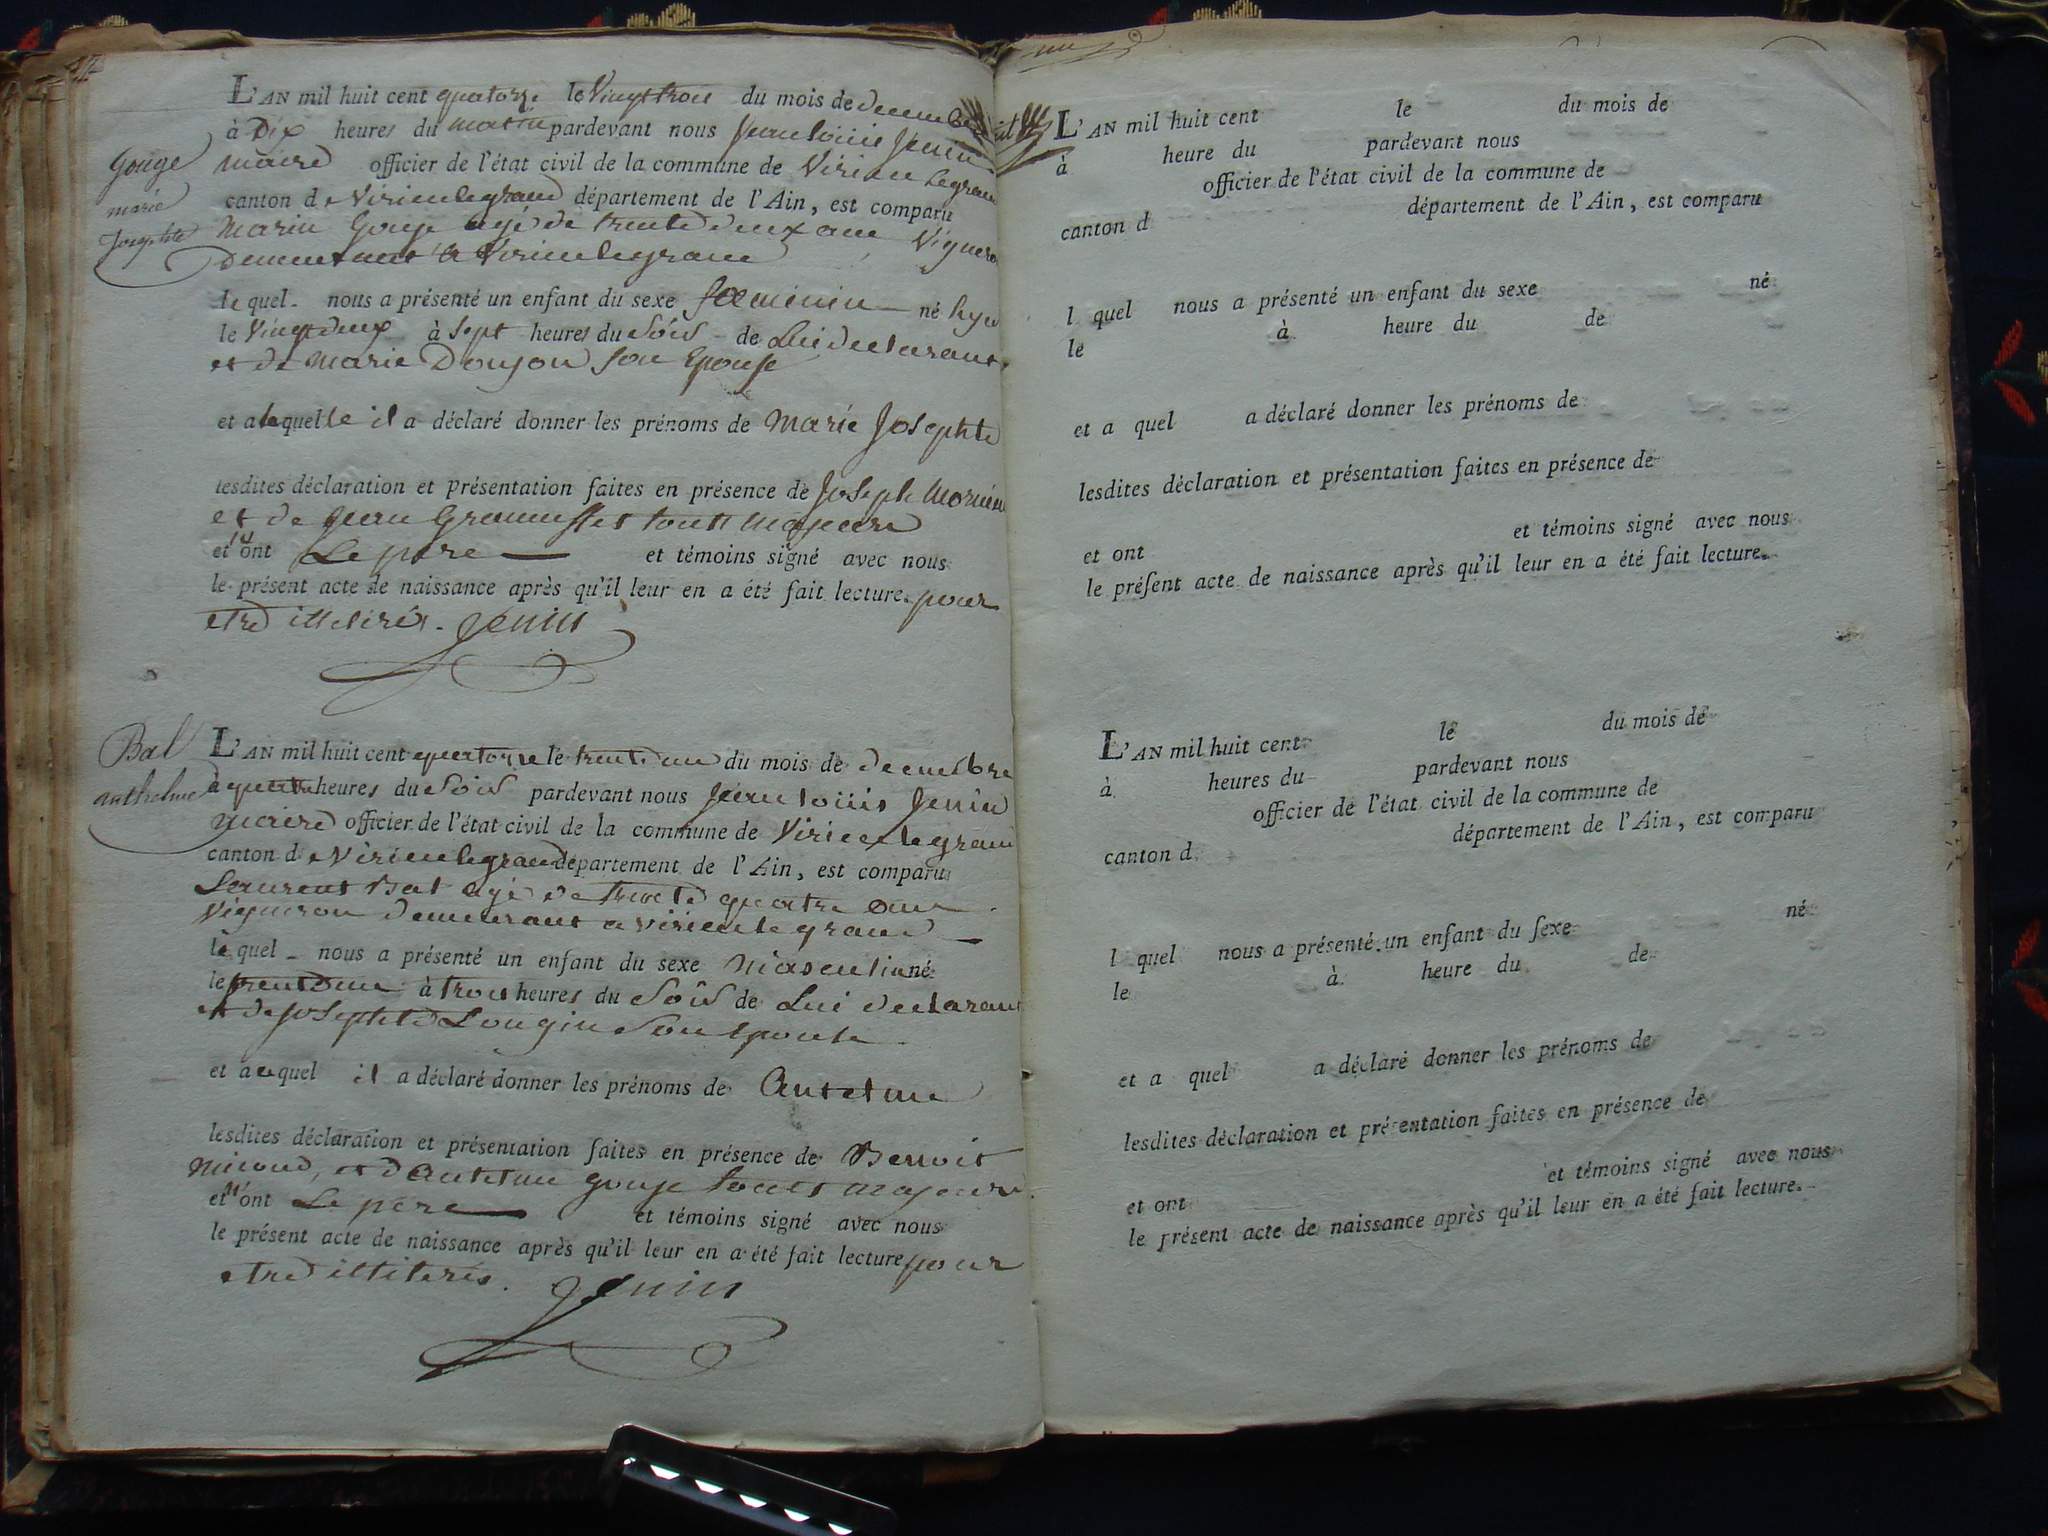 L'AN mil huit cent quatorze le Vingt trois du mois de decembre
à Dix heures du matin pardevant nous Jean louiis Jenin
maire officier de l'état civil de la commune de Virieu legrand
canton de Virieulegrand département de l'Ain, est comparu
Marin Gouje agé de trente deux ans Vigneron
Demeurant a Virieulegrand
Gouge
marie
Josephte
le quel nous a présenté un enfant du sexe foeminin né hyer
le Vingtdeux à Sept heures du Soir de Lui declarant
et de Marie Doujou son Epouse
et a laquelle il a déclaré donner les prénoms de Marie Josephte
lesdites déclaration et présentation faites en présence de Joseph
et de Jean touts Majeurs
et n'ont Le pere et témoins signé avec nous
le présent acte de naissance après qu'il leur en a été fait lecture. pour
etre illiterés. Jenin
Bal
anthelme
L'AN mil huit cent quatorze le trente un du mois de decembre
à quatre heures du Soir pardevant nous Jean louiis Jenin
maire officier de l'état civil de la commune de Virieulegrand
canton de Virieulegrand département de l'Ain, est comparu
Laurent Bal agé de trente quatre ans
Vigneron demeurant a virieulegrand
le quel nous a présenté un enfant du sexe Masculin né
le trente un à trois heures du Soir de Lui declarant
et de Josephte Lougin Son Epouse
et auquel il a déclaré donner les prénoms de Antelme
lesdites déclaration et présentation faites en présence de Benoit
et d'Antelme gouje touts majeurs
et n'ont Le pere et témoins signé avec nous
le présent acte de naissance après qu'il leur en a été fait lecture pour
etre illiterés. Jenin
L'AN mil huit cent le du mois de
à heure du pardevant nous
officier de l'état civil de la commune de
canton d département de l'Ain, est comparu
l quel nous a présenté un enfant du sexe né
le à heure du de
et a quel a déclaré donner les prénoms de
lesdites déclaration et présentation faites en présence de
et ont et témoins signé avec nous
le préſent acte de naissance après qu'il leur en a été fait lecture.
L'AN mil huit cent le du mois de
à heures du pardevant nous
officier de l'état civil de la commune de
canton d département de l'Ain, est comparu
l quel nous a présenté un enfant du ſexe né
le à heure du de
et a quel a déclaré donner les prénoms de
lesdites déclaration et présentation faites en présence de
et ont et témoins signé avec nous
le présent acte de naissance après qu'il leur en a été fait lecture.